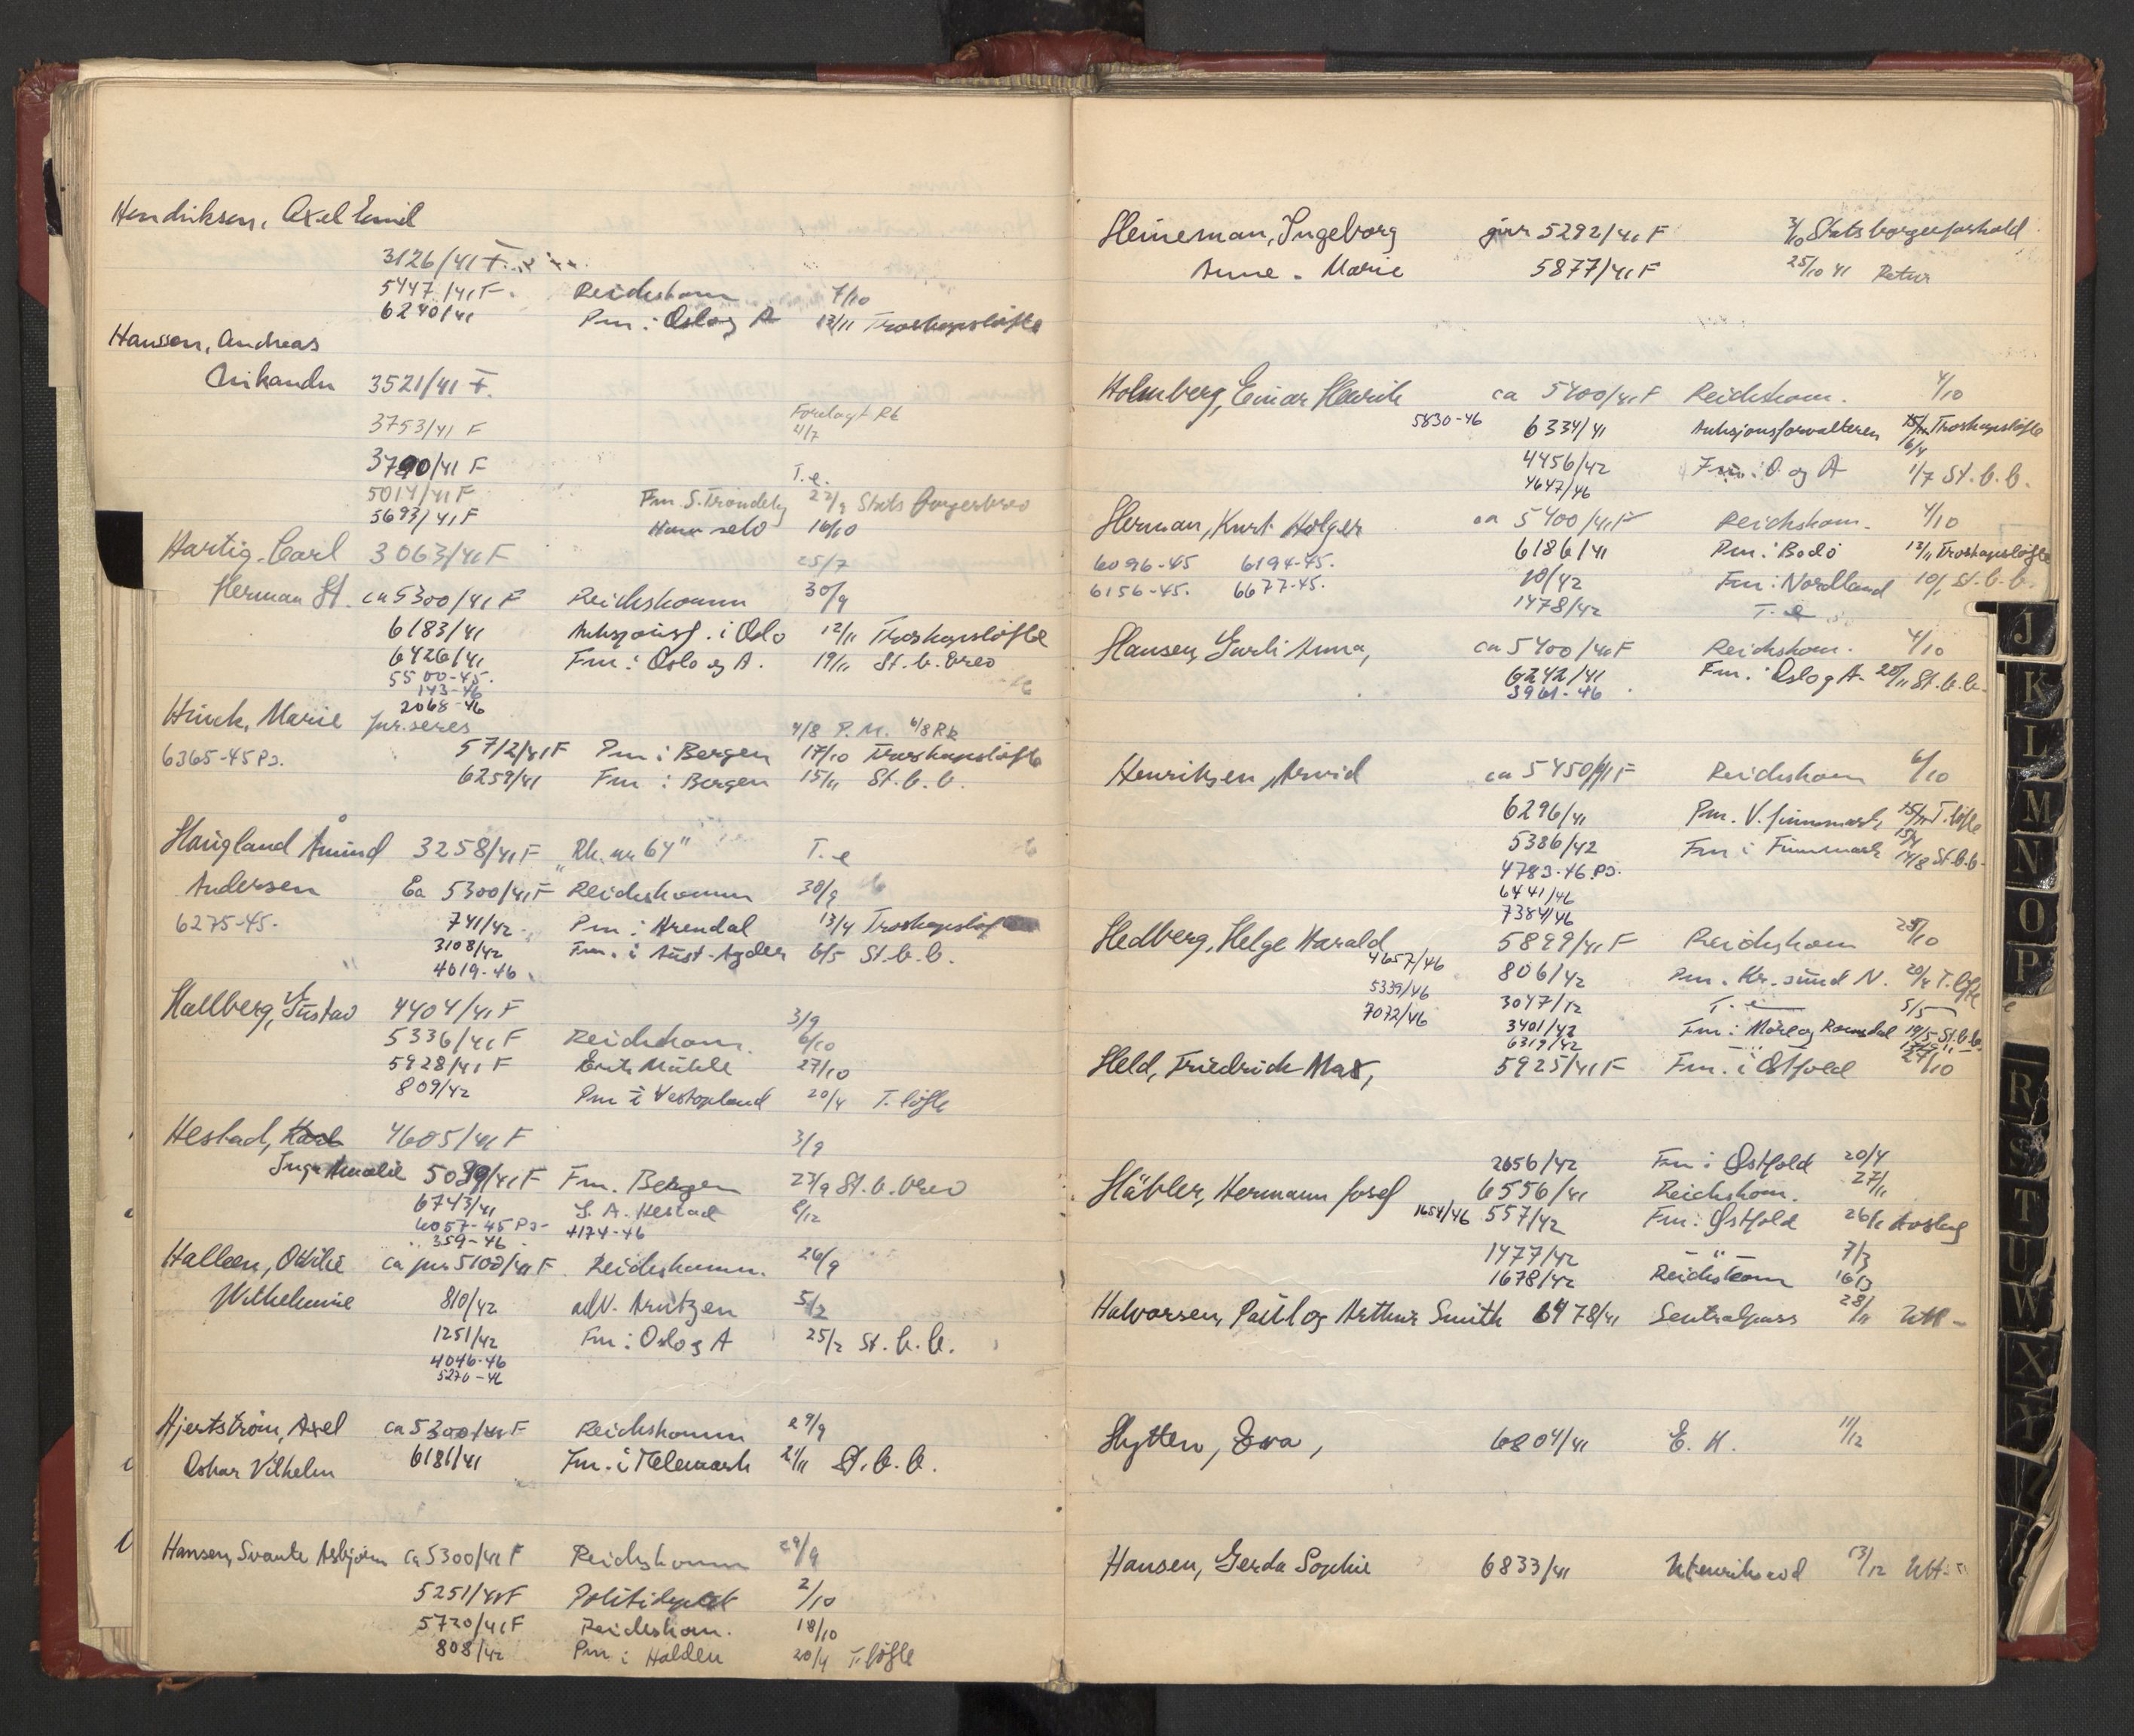 Hendriksen, Axel Emil
3126/41 F.
5447/41 F. Reichskomm 7/10
6240/41 Pm i Oslo og A 12/11 Troskapsløfte
Hansson, Andreas
3521/41 F.
3753/41 F Forelagt Rk 4/7
3790/41 F T.e.
5014/41 F Fm. S. Trøndelag 22/9 Statsborgerbrev
5693/41 F Ham selv 16/10
Hartig, Carl 3063/41 F 25/7
Herman St. ca 5300/41 F Reichskomm 30/9
6183/41 Auksjonsf. i Oslo 12/11 Troskapsløfte
6426/41 Fm i Oslo og A. 19/11 St.b.brev
5500-45.
143-46
2068-46
Hinck, Marie 4/8 P.M. 6/8 Rk
6365-45 PJ. 5712/41 F Pm i Bergen 17/10 Troskapsløfte
6259/41 Fm i Bergen 15/11 St.b.b.
Haugland Åmund 3258/41 F "Rk. nr 64" T.e
Andersen Ca 5300/41 F Reichskomm 30/9
6275-45. 741/42 Pm i Arendal 13/4 Troskapsløf
3108/42 Fm. i Aust-Agder 6/5 St.b.b.
4019-46.
Hallberg, Gustav 4404/41 F 3/9
5336/41 F Reichskom. 6/10
5928/41 F Erik Mühle 27/10
809/42 Pm i Vestopland 20/4 T. løfte
Hestad, Karl 4605/41 F 3/9
Inga Amalie 5099/41 F Fm. Bergen 23/9 St.b.brev
6743/41 I. A. Hestad 8/12
6057-45 PJ- 4174-46
359-46
Halleen, Ottilie ca jnr 5100/41 F. Reichskomm. 26/9
Wilhelmine 810/42 adv. Arntzen 5/2
1251/42 Fm i Oslo og A 25/2 St.b.b.
4046-46
5270-46
Hjertström, Axel ca 5300/41 F Reichskomm 29/9
Oskar Vilhelm 6181/41 Fm. i Telemark 21/11 St.b.b.
Hansen, Svante Asbjørn ca 5300/41 F Reichskomm 29/9
5251/41 F Politidept 2/10
5720/41 F Reichskom. 18/10
808/42 Pm i Halden 20/4 T. løfte
Heineman, Ingeborg jnr 5292/41 F 3/10 Statsborgerforhold
Anne-Marie 5877/41 F 25/10 41 Retur
Holmberg, Einar Henrik ca 5400/41 F Reichskom. 4/10
5830-46 6334/41 Auksjonsforvalteren 15/11 Troskapsløfte
4456/42 Fm i O. og A 1/7 St.b.b.
4647/46
Herman, Kurt Holger ca 5400/41 F Reichskom. 4/10
6096-45 6194-45. 6186/41 Pm i Bodø 13/11 Troskapsløfte
6156-45. 6677-45. 10/42 Fm i Nordland 10/1 St.b.b.
1478/42 T.e
Hansen, Gurli Anna, ca 5400/41 F Reichskom. 4/10
6242/41 Fm. i Oslo og A. 20/11 St.b.b.
3961-46
Henriksen, Arvid ca 5450/41 F Reichskom 6/10
6296/41 Pm. V. finnmark 15/11 T. løfte
5386/42 Fm i Finnmark 14/8 St.b.b.
4783-46 PJ.
6441/46
7384/46
Hedberg, Helge Harald 5899/41 F Reichskom 25/10
4657/46 806/42 Pm. Kr.sund N. 20/4 T. løfte
5339/46 3047/42 T.e 5/5
7072/46 3401/42 Fm i Møre og Romsdal 19/5 St.b.b.
6319/42
Held, Friedrich Max, 5925/41 F Fm. i Østfold 27/10
2656/42 Fm i Østfold 20/4
Häbler, Hermann Josef 6556/41 Reichskom. 27/11
1654/46 557/42 Fm i Østfold 26/1 Avslag
1477/42 - " - 7/3
1678/42 Reichskom 16/3
Halvorsen, Paul og Arthur Smith 6478/41 Sentralpass 28/11
Hytten, Eva, 6804/41 E. H. 11/12
Hansen, Gerda Sophie 6833/41 13/12
J
K
L
M
N
O
P
R
S
T
U
W
X
Y
Z